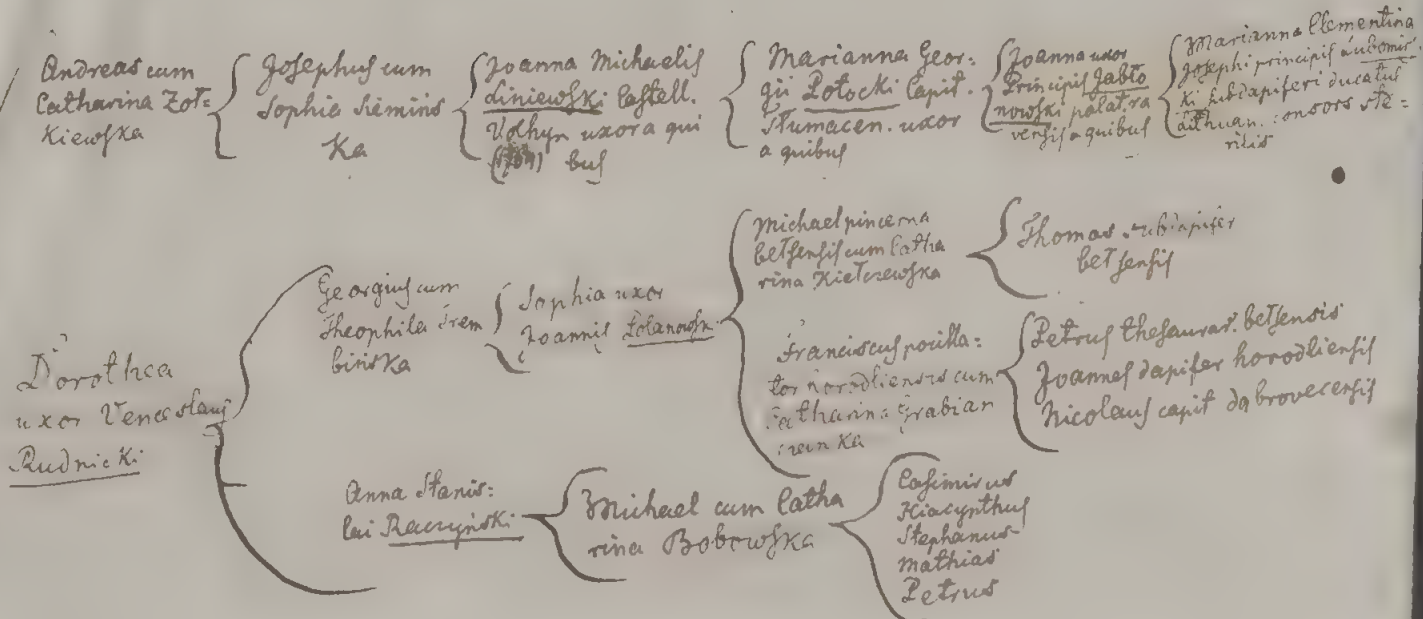 Andreas cum
Catharina Żoł=
kiewska
Josephus cum
Sophia Siemins
ka
Joanna Michaelis
Liniewski Castell.
Volhyn uxor a qui
bus
Marianna Geor=
gii Potocki Capit.
Tłumacen. uxor
a quibus
Joanna uxor
Principis Jabło
nowski palat. ra
vensis a quibus
Marianna Clementina
Josephi principis Lubomir=
ki subdapiferi ducatus
Lithuan. consors ste=
rilis
Dorothea
uxor Venceslaus
Rudnicki
Georgius cum
Theophila Trem
bińska
Sophia uxor
Joannis
Michael pincerna
bełsensis cum Catha
rina Kiełczewska
Thomas subdapifer
bełsensis
Franciscus pocilla=
tor horodliensis cum
Catharina Grabian
ka
Petrus thesaurar. bełsensis
Joannes dapifer horodliensis
Nicolaus capit dąbrovecensis
Anna Stanis=
lai Raczyński
Michael cum Catha
rina Bobowska
Casimirus
Hiacynthus
Stephanus
Mathias
Petrus